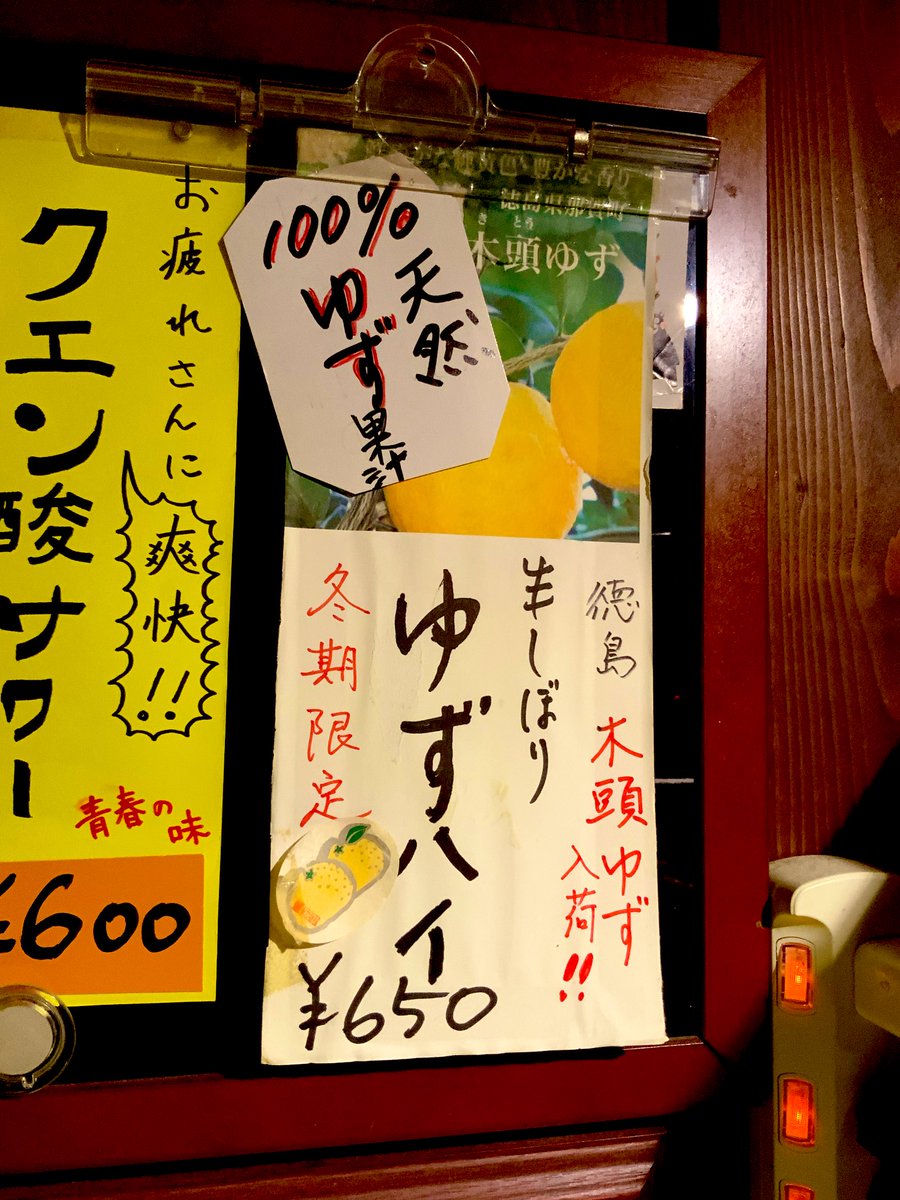 お疲れさんに
爽快!!
クエン酸サワー
青春の味
¥600
100%
天然
ゆず果汁
豊かな香り
徳島県那賀町
きとう
木頭ゆず
徳島 木頭ゆず
入荷!!
生しぼり
ゆずハイ
冬期限定
¥650